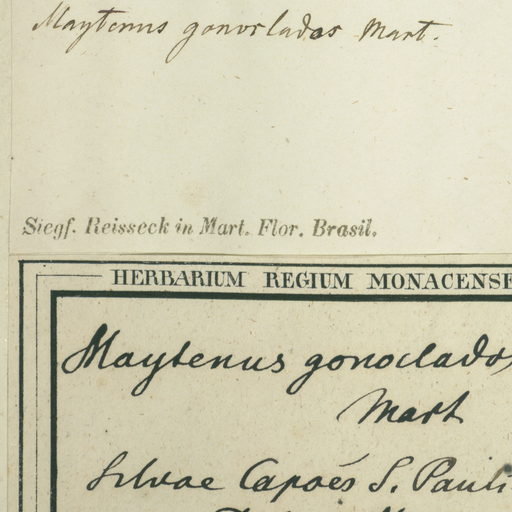 Maytenus gonoclados Mart.
Siegf. Reisseck in Mart. Flor. Brasil.
HERBARIUM REGIUM MONACENSE
Maytenus gonoclados
Mart
Silvae Capoés S. Pauli